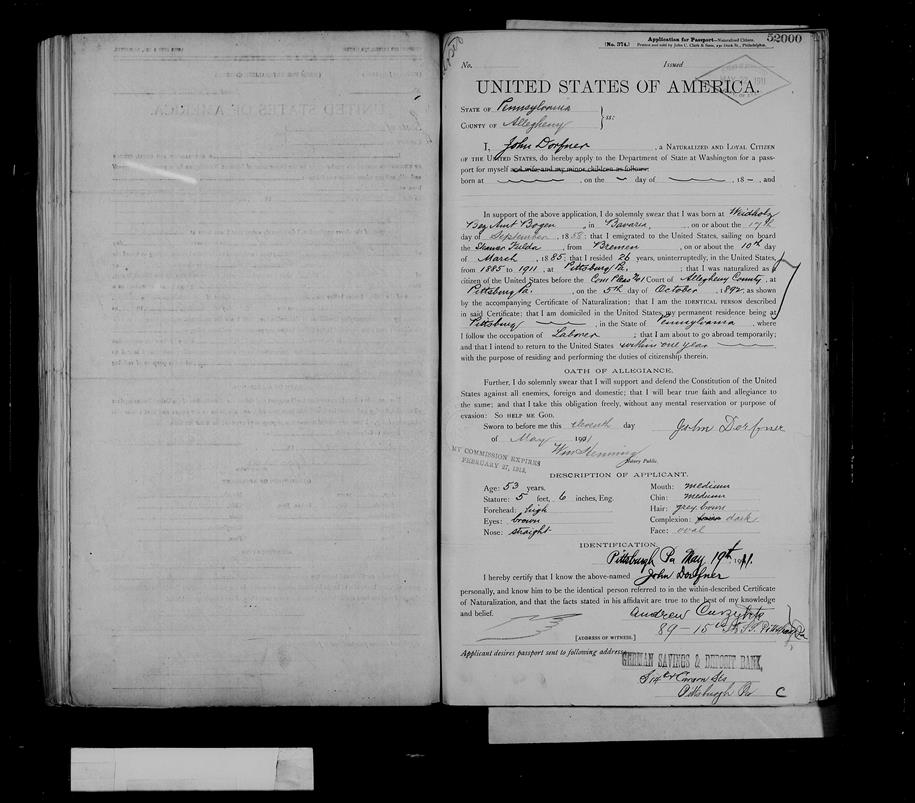 Application for Passport—Naturalized Citizen. 52000
[No. 374.] Printed and sold by John C. Clark & Sons, 230 Dock St., Philadelphia.
No. Issued
MAY 22 1911
UNITED STATES OF AMERICA.
STATE OF Pennsylvania
COUNTY OF Allegheny } ss:
I, John Dorfner, a NATURALIZED AND LOYAL CITIZEN
OF THE UNITED STATES, do hereby apply to the Department of State at Washington for a pass-
port for myself and wife and my minor children as follows:
born at , on the day of , 18 , and
In support of the above application, I do solemnly swear that I was born at Weidholz
Bez Amt Bogen, in Bavaria, on or about the 17th
day of September, 1858; that I emigrated to the United States, sailing on board
the Steamer Fulda, from Bremen, on or about the 10th day
of March, 1885; that I resided 26 years, uninterruptedly, in the United States,
from 1885 to 1911, at Pittsburg Pa. ; that I was naturalized as a
citizen of the United States before the Com Pleas No 1 Court of Allegheny County, at
Pittsburg Pa. , on the 5th day of October, 1892, as shown
by the accompanying Certificate of Naturalization; that I am the IDENTICAL PERSON described
in said Certificate; that I am domiciled in the United States, my permanent residence being at
Pittsburg , in the State of Pennsylvania, where
I follow the occupation of Laborer ; that I am about to go abroad temporarily;
and that I intend to return to the United States within one year
with the purpose of residing and performing the duties of citizenship therein.
OATH OF ALLEGIANCE.
Further, I do solemnly swear that I will support and defend the Constitution of the United
States against all enemies, foreign and domestic; that I will bear true faith and allegiance to
the same; and that I take this obligation freely, without any mental reservation or purpose of
evasion: SO HELP ME GOD.
Sworn to before me this eleventh day John Dorfner
of May 1911
Wm Henning
Notary Public.
MY COMMISSION EXPIRES
FEBRUARY 27, 1913.
DESCRIPTION OF APPLICANT.
Age: 53 years. Mouth: medium
Stature: 5 feet, 6 inches, Eng. Chin: medium
Forehead: high Hair: grey brown
Eyes: brown Complexion: dark
Nose: straight Face: oval
IDENTIFICATION.
Pittsburgh Pa May 19th, 1911.
I hereby certify that I know the above-named John Dorfner
personally, and know him to be the identical person referred to in the within-described Certificate
of Naturalization, and that the facts stated in his affidavit are true to the best of my knowledge
and belief. Andrew
89 - 15th St S.S. Pittsburg Pa
[ADDRESS OF WITNESS.]
Applicant desires passport sent to following address:
GERMAN SAVINGS & DEPOSIT BANK,
S 14th & Carson Sts
Pittsburgh Pa C